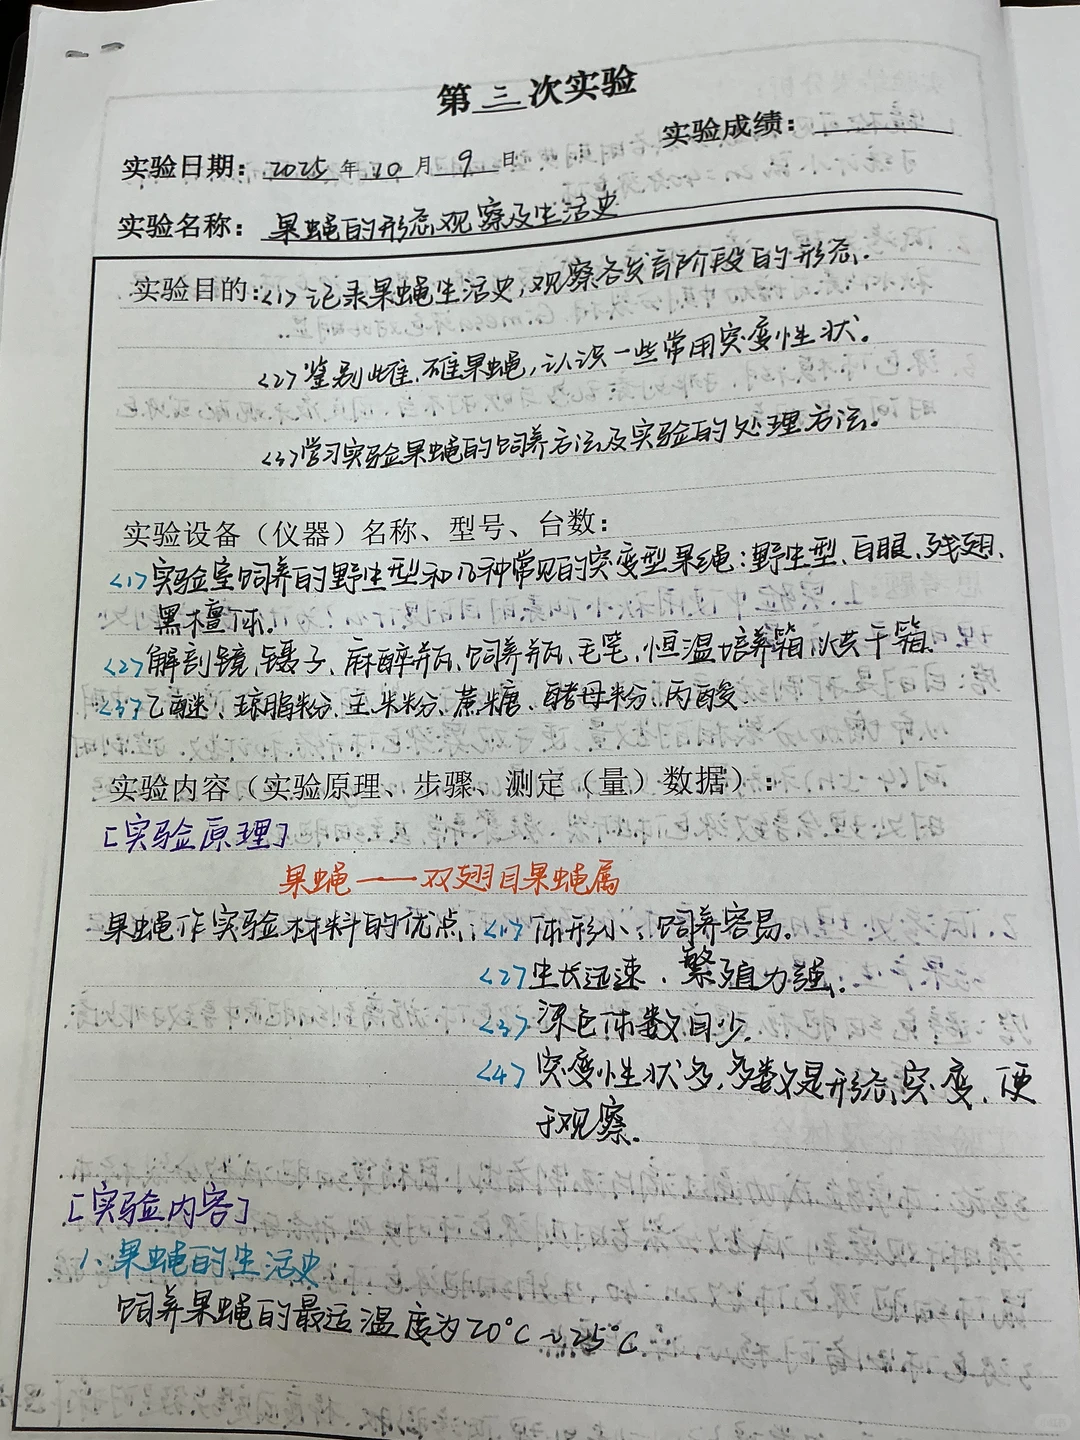 第三次实验
实验成绩:
实验日期: 2025 年 10 月 9 日
实验名称: 果蝇的形态观察及生活史
实验目的: <1> 记录果蝇生活史,观察各发育阶段的形态.
<2> 鉴别雌、雄果蝇,认识一些常用突变性状。
<3> 学习实验果蝇的饲养方法及实验的处理方法。
实验设备(仪器)名称、型号、台数:
<1> 实验室饲养的野生型和几种常见的突变型果绳:野生型、白眼、残翅、
黑檀体.
<2> 解剖镜、镊子、麻醉瓶、饲养瓶、毛笔、恒温培养箱、烘干箱.
<3> 乙醚、琼脂粉、玉米粉、蔗糖、酵母粉、丙酸.
实验内容(实验原理、步骤、测定(量)数据):
[实验原理]
果蝇——双翅目果蝇属
果蝇作实验材料的优点: <1> 体形小、饲养容易。
<2> 生长迅速、繁殖力强.
<3> 染色体数目少.
<4> 突变性状多,多数是形态突变,便
于观察.
[实验内容]
1、果蝇的生活史
饲养果蝇的最适温度为20°C~25°C